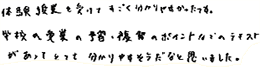 体験授業を受けてすごく分かりやすかったです。
学校の授業の予習・復習のポイントなどのテキスト
があってとても分かりやすそうだなと思いました。